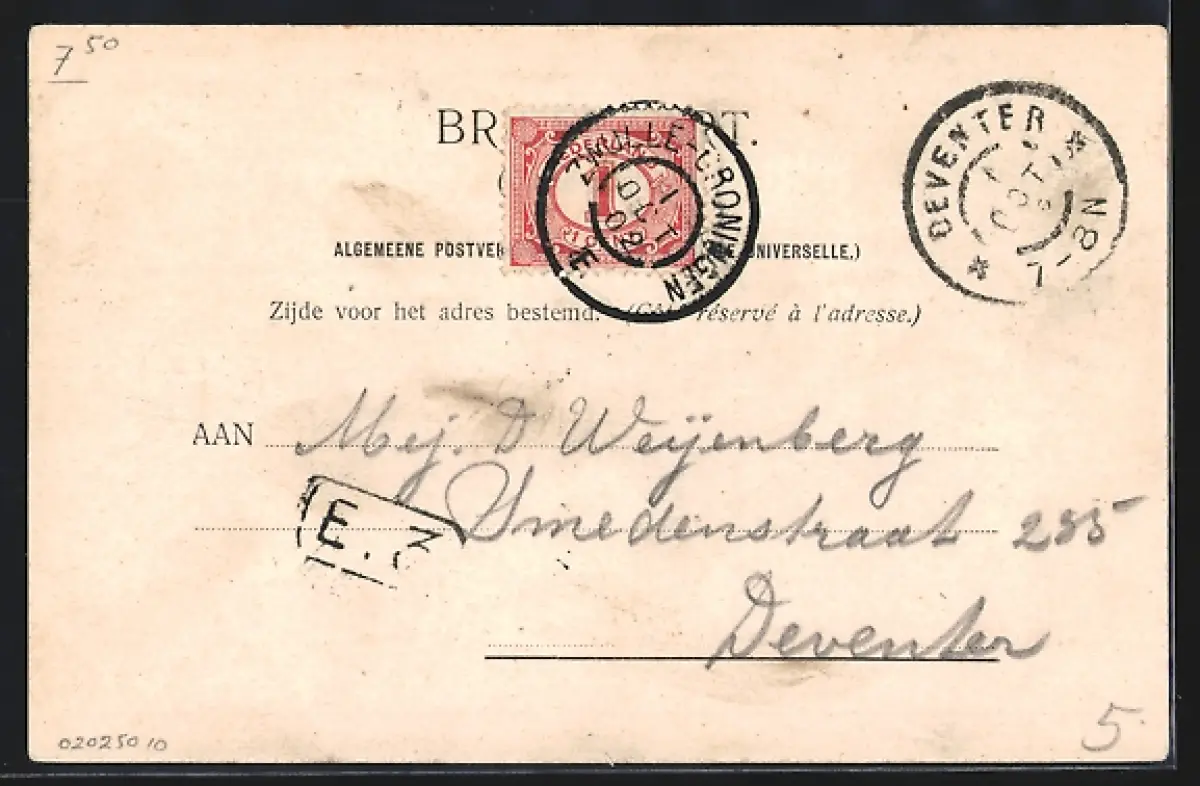 7 50
BR RT.
ALGEMEENE POSTVER UNIVERSELLE.)
Zijde voor het adres bestemd. (Côté réservé à l'adresse.)
NEDERLAND
1
CENT
ZWOLLE-GRONINGEN
E
DEVENTER
OCT
7-8N
AAN Mej. D Weijenberg
Smedenstraat 285
Deventer
E. 3
02025010
5